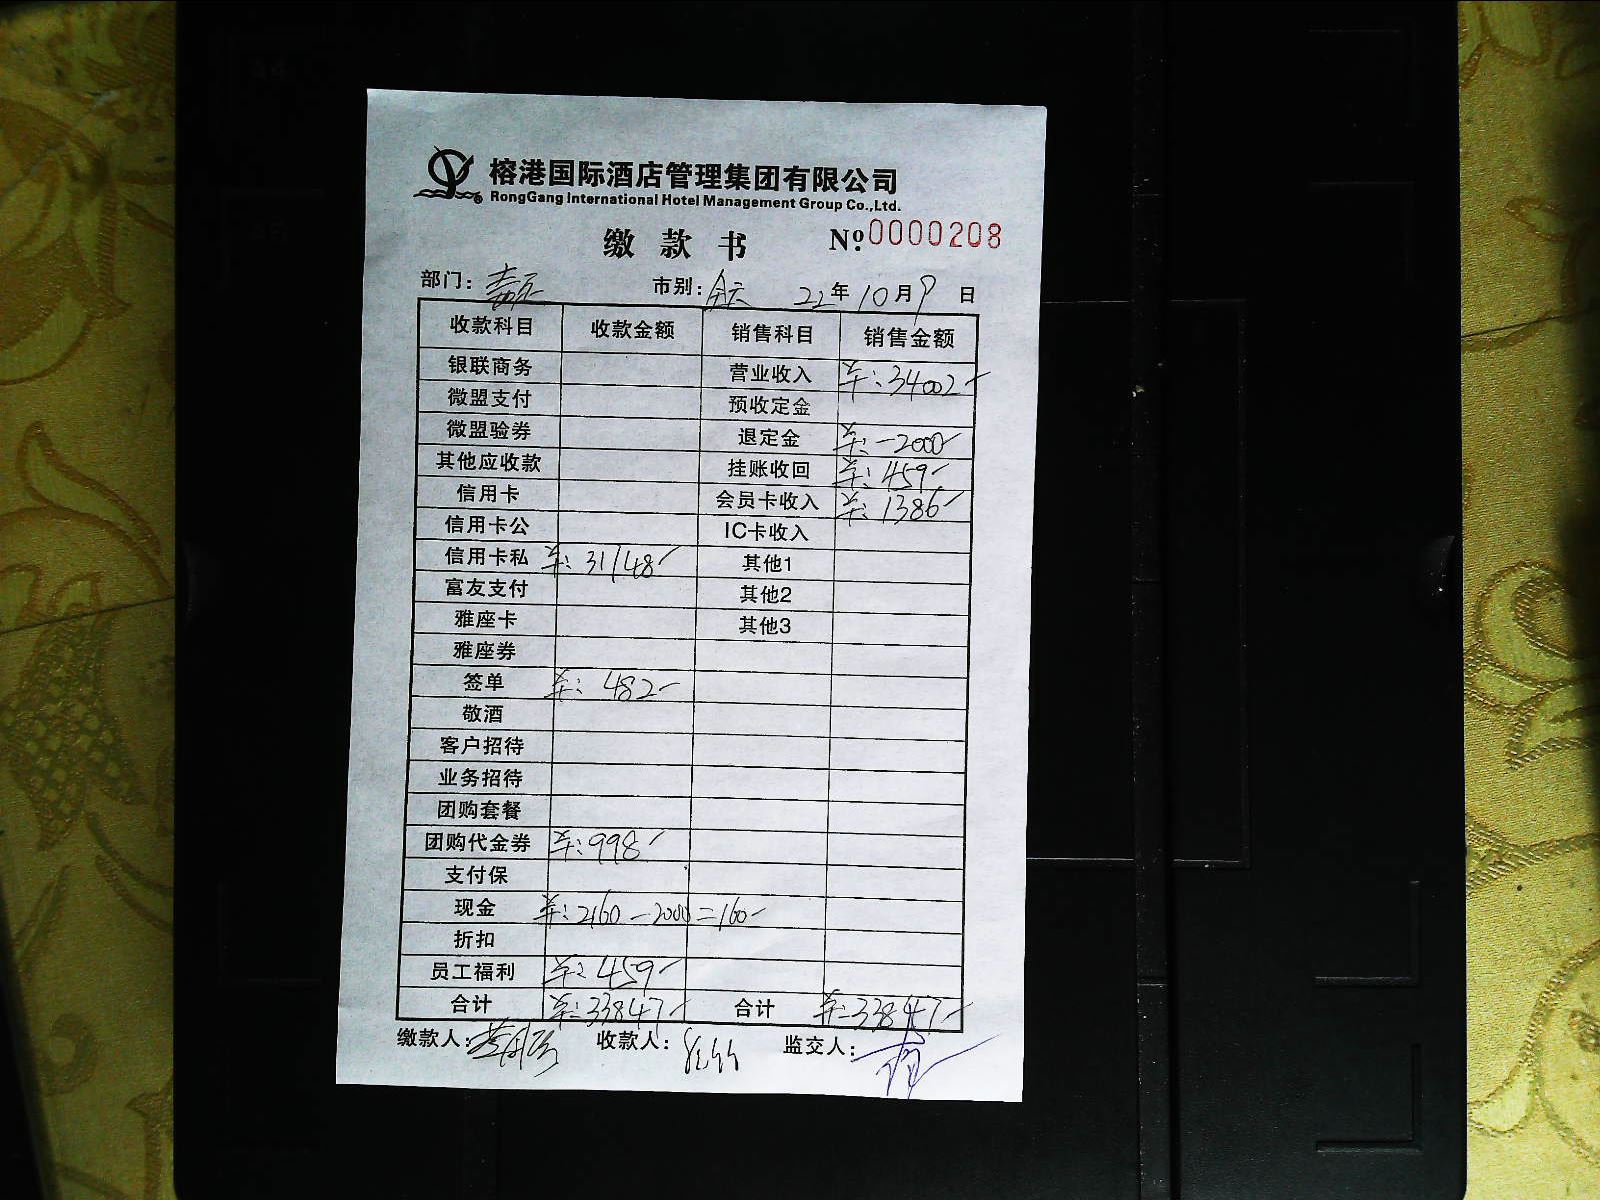 榕港国际酒店管理集团有限公司
RongGang International Hotel Management Group Co.,Ltd.
缴款书 №0000208
部门: 市别:全天 22年10月9日
收款科目 收款金额 销售科目 销售金额
银联商务 营业收入 ¥:34002-
微盟支付 预收定金
微盟验券 退定金 ¥:-2000-
其他应收款 挂账收回 ¥:459-
信用卡 会员卡收入 ¥:1386-
信用卡公 IC卡收入
信用卡私 ¥:31148- 其他1
富友支付 其他2
雅座卡 其他3
雅座券
签单 ¥:482-
敬酒
客户招待
业务招待
团购套餐
团购代金券 ¥:998-
支付保
现金 ¥:2160-2000=160-
折扣
员工福利 ¥:459-
合计 ¥:33847- 合计 ¥:33847-
缴款人: 收款人: 监交人: